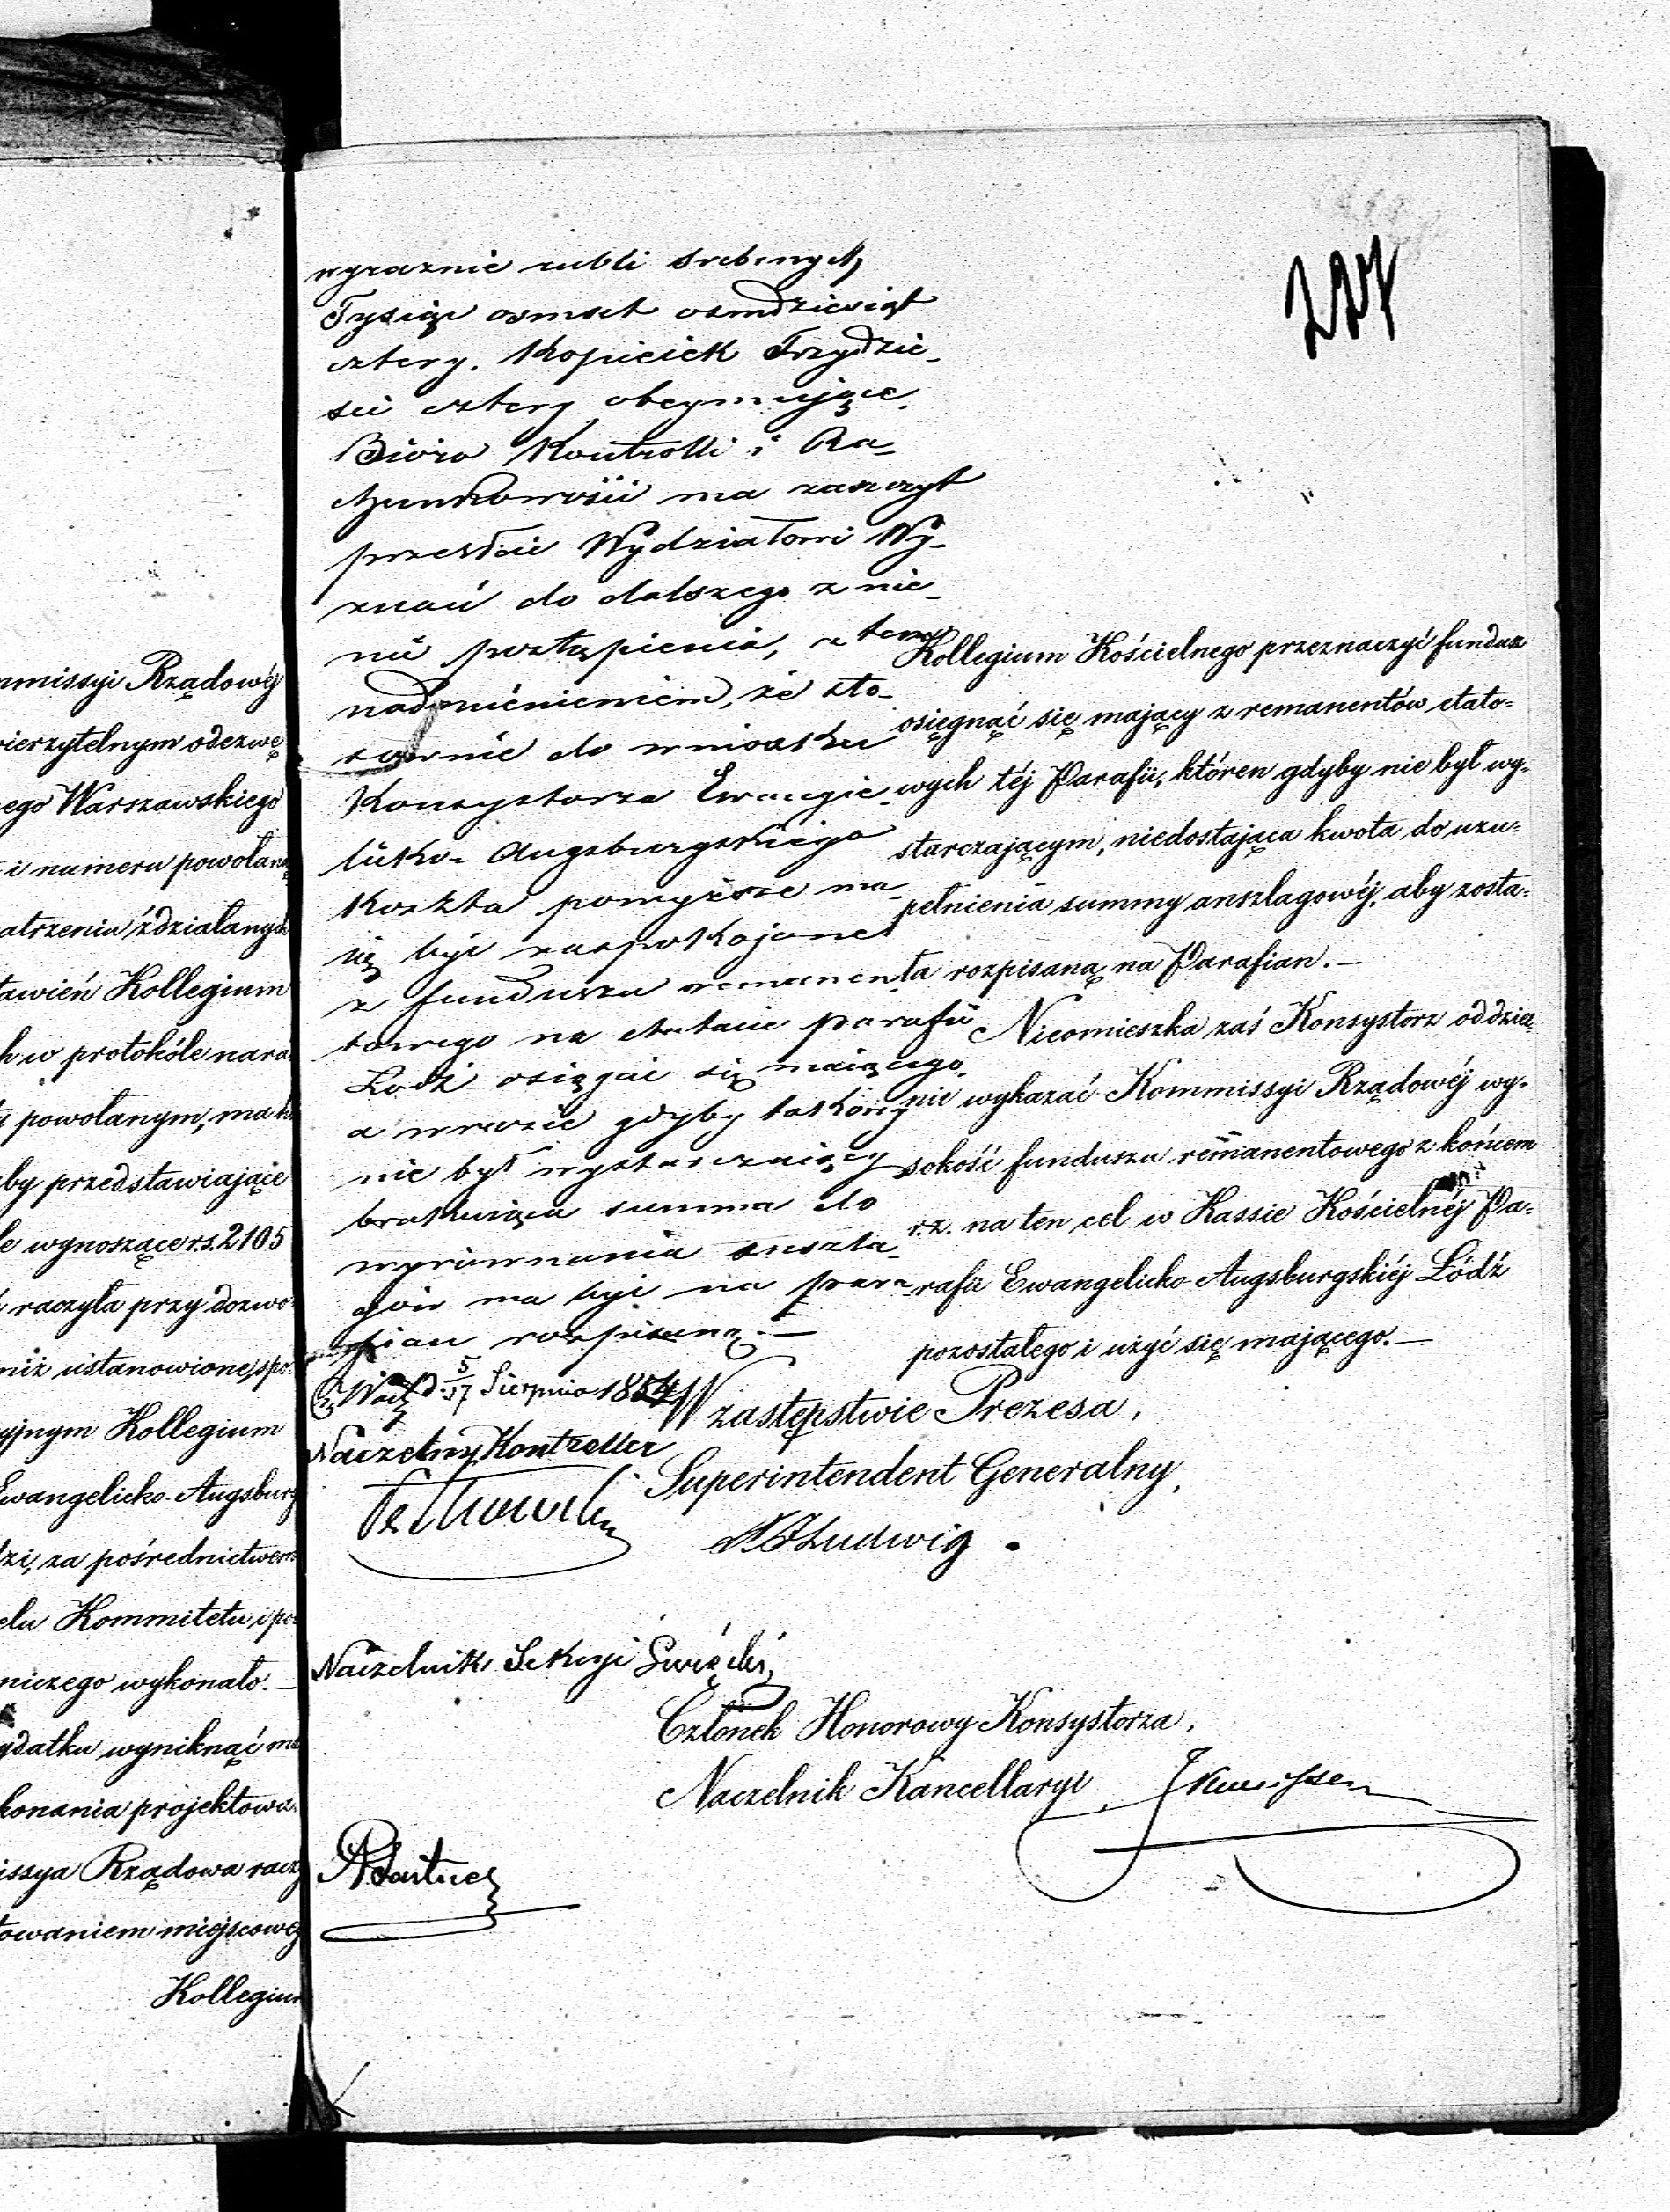 mmissyi Rządowéj
wierzytelnym odezwę
ego Warszawskiego
i numeru powołaną
atrzeniu zdziałanych
tawień Kollegium
h w protokóle nara
powołanym, ma
by przedstawiające
le wynoszące r.s. 2105
raczyła przy dozwo
niż ustanowione, spo
yjnym Kollegium
Ewangelicko-Augsburg
dzi, za pośrednictwem
elu Kommitetu i po
niczego wykonało. —
ydatku wyniknąć ma
konania projektowa
issya Rządowa racz
towaniem miejscoweg
Kollegium
227
wyraznie rubli srebrnych
Tysiąc osmset osmdziesiąt
cztery. Kopieiek Trzydzie-
sci cztery obeymujące.
Bióro Kontrolli i Ra-
chunkowości ma zaszczyt
przesłać Wydziałowi Wy-
znań do dalszego z nie-
mi postąpienia, z tem
nadmienieniem, że sto-
sownie do wniosku
Konsystorza Ewangie-
licko-Augsburgskiego
Koszta powyższe ma-
ią być zaspokojone
z funduszu remanen-
towego na etatcie parafii
Łodź osięgać się maiącego,
a w razie gdyby takowy
nie był wystarczaiący
brakuiąca summa do
wyrównania anszla-
gów ma być na para-
fian rozpisaną. —
d. 5/17 Sierpnia 1854
Naczelny Kontroller
Naczelnik Sekcyi Święcki
Kollegium Kościelnego przeznaczyć fundusz
osięgnąć się mający z remanentów etato=
wych téj Parafii, któren gdyby nie był wy-
starczającym, niedostająca kwota do uzu=
pełnienia summy anszlagowéj, aby zosta=
ła rozpisaną na Parafian. —
Nieomieszka zaś Konsystorz oddziel-
nie wykazać Kommissyi Rządowéj wy-
sokość funduszu remanentowego z końcem
r.z. na ten cel w Kassie Kościelnéj Pa=
rafii Ewangelicko-Augsburgskiéj Łódź
pozostałego i użyć się mającego. —
W zastępstwie Prezesa,
Superintendent Generalny,
Ludwig.
Członek Honorowy Konsystorza,
Naczelnik Kancellaryi,